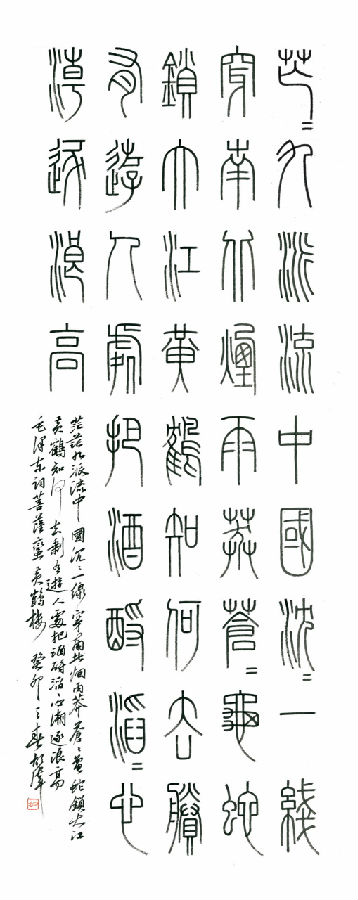 茫〻九派流中國沈〻一綫
穿南北煙雨莽蒼〻龜蛇
鎖大江黃鶴知何去賸
有遊人處把酒酹滔〻心
潮逐浪高
茫茫九派流中國沉〻一線穿南北烟雨莽蒼〻龜蛇鎖大江
黃鶴知何去剩有遊人處把酒酹滔心潮逐浪高
毛澤东詞菩薩蠻黃鶴楼 癸卯之春